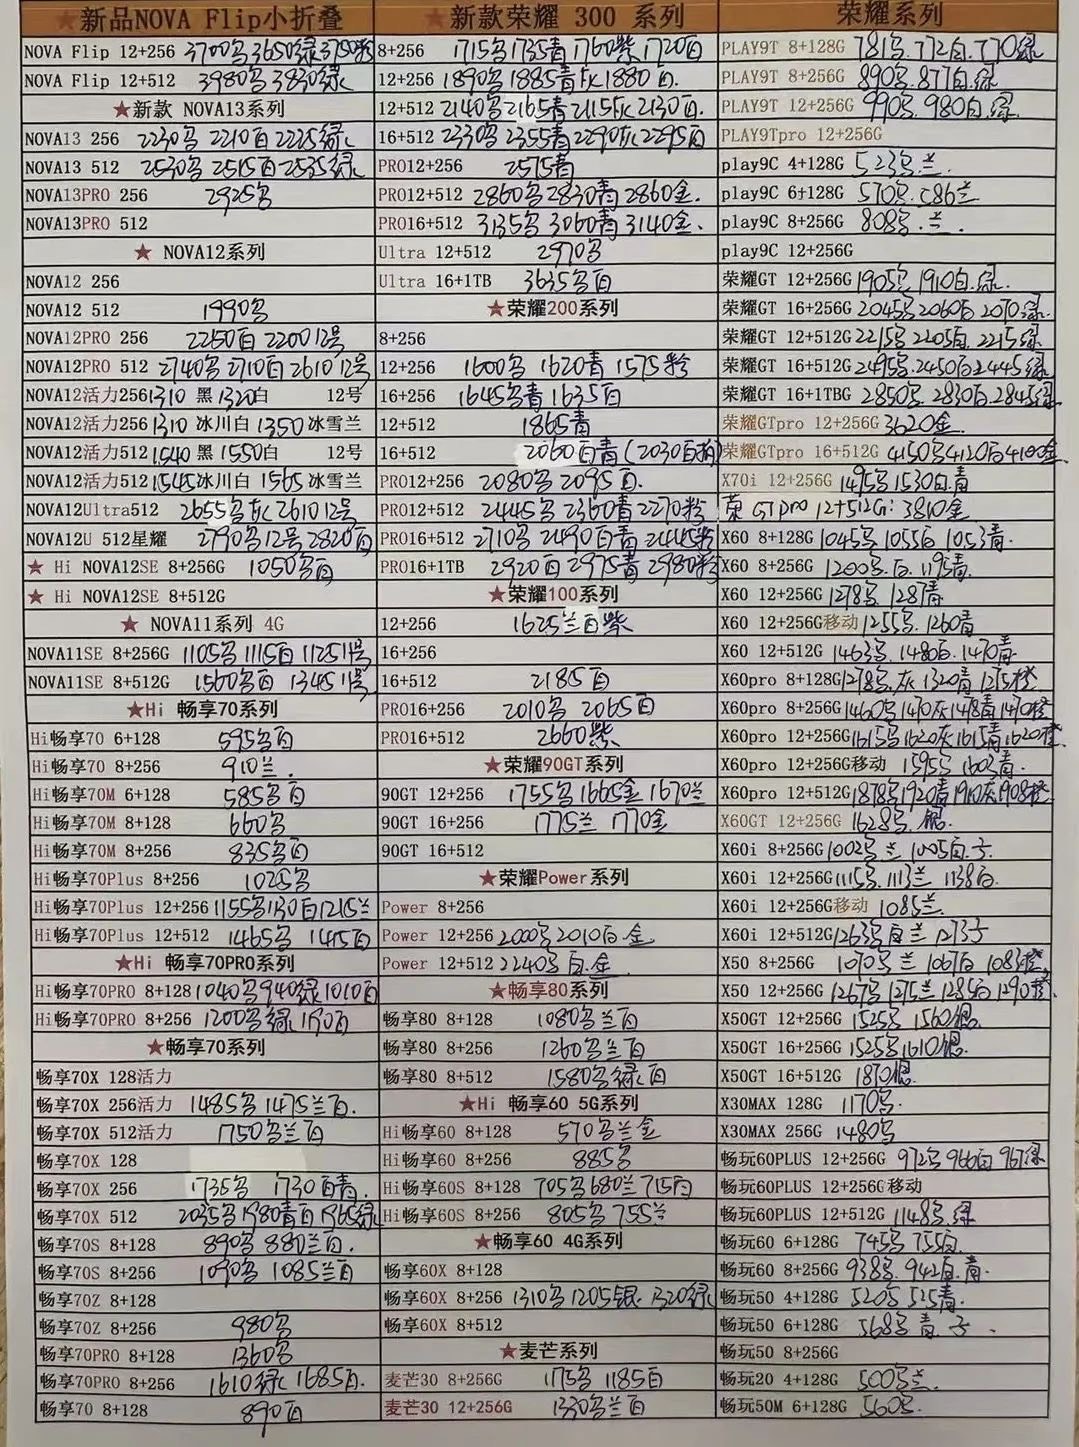 ★新品NOVA Flip小折叠
NOVA Flip 12+256 3700 3650绿 3750粉
NOVA Flip 12+512 3980 3830绿
★新款 NOVA13系列
NOVA13 256 2230 2210白 2225绿
NOVA13 512 2530 2515白 2535绿
NOVA13PRO 256 2925
NOVA13PRO 512
★ NOVA12系列
NOVA12 256
NOVA12 512 1990
NOVA12PRO 256 2250白 2200 12号
NOVA12PRO 512 2740 2710白 2610 12号
NOVA12活力256 1310 黑 1320白 12号
NOVA12活力256 1310 冰川白 1350 冰雪兰
NOVA12活力512 1540 黑 1550白 12号
NOVA12活力512 1545 冰川白 1565 冰雪兰
NOVA12Ultra512 2655 灰 2610 12号
NOVA12U 512星耀 2790 12号 2820白
★ Hi NOVA12SE 8+256G 1050 白
★ Hi NOVA12SE 8+512G
★ NOVA11系列 4G
NOVA11SE 8+256G 1105 1115白 1125 11号
NOVA11SE 8+512G 1560 白 1345 11号
★Hi 畅享70系列
Hi畅享70 6+128 595 白
Hi畅享70 8+256 910兰.
Hi畅享70M 6+128 585 白
Hi畅享70M 8+128 660
Hi畅享70M 8+256 835 白
Hi畅享70Plus 8+256 1025
Hi畅享70Plus 12+256 1155 1130白 1215兰
Hi畅享70Plus 12+512 1465 1415白
★Hi 畅享70PRO系列
Hi畅享70PRO 8+128 1040 940绿 1010白
Hi畅享70PRO 8+256 1200 绿 1190白
★畅享70系列
畅享70X 128活力
畅享70X 256活力 1485 1475兰白.
畅享70X 512活力 1750 兰白
畅享70X 128
畅享70X 256 1735 1730白青.
畅享70X 512 2035 1980青白 1965绿
畅享70S 8+128 890 880兰白.
畅享70S 8+256 1090 1085兰白
畅享70Z 8+128
畅享70Z 8+256 980
畅享70PRO 8+128 1360
畅享70PRO 8+256 1610绿 1685白.
畅享70 8+128 890白
★新款荣耀 300 系列
8+256 1715 1735青 1760紫 1720白
12+256 1890 1885青灰 1880白.
12+512 2140 2165青 2115灰 2130白.
16+512 2330 2355青 2290灰 2295白
PRO12+256 2575青
PRO12+512 2860 2830青 2860金.
PRO16+512 3135 3060青 3140金.
Ultra 12+512 2970
Ultra 16+1TB 3635 白
★荣耀200系列
8+256
12+256 1600 1620青 1575粉
16+256 1645 青 1635白
12+512 1865青
16+512 2060白青(2030白
PRO12+256 2080 2095白.
PRO12+512 2445 2360青 2270粉
PRO16+512 2710 2490白青 2445粉
PRO16+1TB 2920白 2975青 2980粉
★荣耀100系列
12+256 1625兰白紫
16+256
16+512 2185白
PRO16+256 2010 2065白
PRO16+512 2660紫
★荣耀90GT系列
90GT 12+256 1755 1665金 1670兰
90GT 16+256 1775兰 1770金
90GT 16+512
★荣耀Power系列
Power 8+256
Power 12+256 2000 2010白.金
Power 12+512 2240 白.金
★畅享80系列
畅享80 8+128 1080 兰白
畅享80 8+256 1260 兰白
畅享80 8+512 1580 绿白
★Hi 畅享60 5G系列
Hi畅享60 8+128 570 兰金
Hi畅享60 8+256 885
Hi畅享60S 8+128 705 680兰 715白
Hi畅享60S 8+256 805 755兰
★畅享60 4G系列
畅享60X 8+128
畅享60X 8+256 1310 1205银. 1320绿
畅享60X 8+512
★麦芒系列
麦芒30 8+256G 1175 1185白
麦芒30 12+256G 1330 兰白
荣耀系列
PLAY9T 8+128G 781 772白.770绿
PLAY9T 8+256G 890 877白.绿
PLAY9T 12+256G 990 980白.绿
PLAY9Tpro 12+256G
play9C 4+128G 523 兰
play9C 6+128G 570 586兰
play9C 8+256G 808 .兰
play9C 12+256G
荣耀GT 12+256G 1905 1910白.绿.
荣耀GT 16+256G 2045 2060白 2070绿
荣耀GT 12+512G 2215 2205白 2215绿
荣耀GT 16+512G 2495 2450白 2445绿
荣耀GT 16+1TBG 2850 2830白 2845绿
荣耀GTpro 12+256G 3620金
荣耀GTpro 16+512G 4150 4120白 4100金
X70i 12+256G 1495 1530白.青
荣 GTpro 12+512G: 3810金
X60 8+128G 1045 1055白 1053青.
X60 8+256G 1200 .白. 1195青.
X60 12+256G 1278 1287青
X60 12+256G移动 1255 .1260青
X60 12+512G 1463 1480白.1470青
X60pro 8+128G 1278 .灰 1320青 1275橙
X60pro 8+256G 1460 1470灰 1478青 1470橙
X60pro 12+256G 1615 1620灰 1615青 1620橙
X60pro 12+256G移动 1595 1602青.
X60pro 12+512G 1878 1920青 1910灰 1908橙
X60GT 12+256G 1628 .银.
X60i 8+256G 1002 兰 1005白.
X60i 12+256G 1115 .1113兰 1138白.
X60i 12+256G移动 1085兰.
X60i 12+512G 1263 白兰 1273
X50 8+256G 1070 兰 1067白 1083橙
X50 12+256G 1267 1275兰 1285白 1290橙
X50GT 12+256G 1525 1560银.
X50GT 16+256G 1525 1610银.
X50GT 16+512G 1870银.
X30MAX 128G 1170
X30MAX 256G 1480
畅玩60PLUS 12+256G 972 966白 967绿
畅玩60PLUS 12+256G移动
畅玩60PLUS 12+512G 1148 .绿
畅玩60 6+128G 745 755白.
畅玩60 8+256G 938 .942白.青.
畅玩50 4+128G 520 525青.
畅玩50 6+128G 568 青.
畅玩50 8+256G
畅玩20 4+128G 500 兰.
畅玩50M 6+128G 560